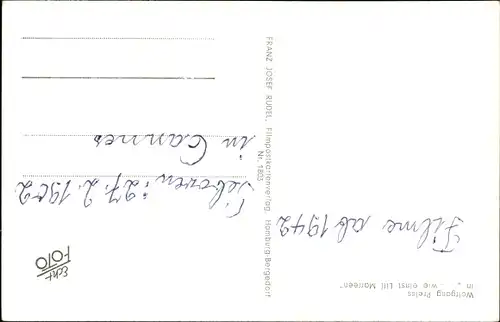 Wolfgang Preiss
in „... wie einst Lili Marleen"
Filme ab 1942
FRANZ JOSEF RUDEL, Filmpostkartenverlag, Hamburg-Bergedorf
Nr. 1803
Geboren: 27. 2. 1902
in Cannes
Echt
FOTO